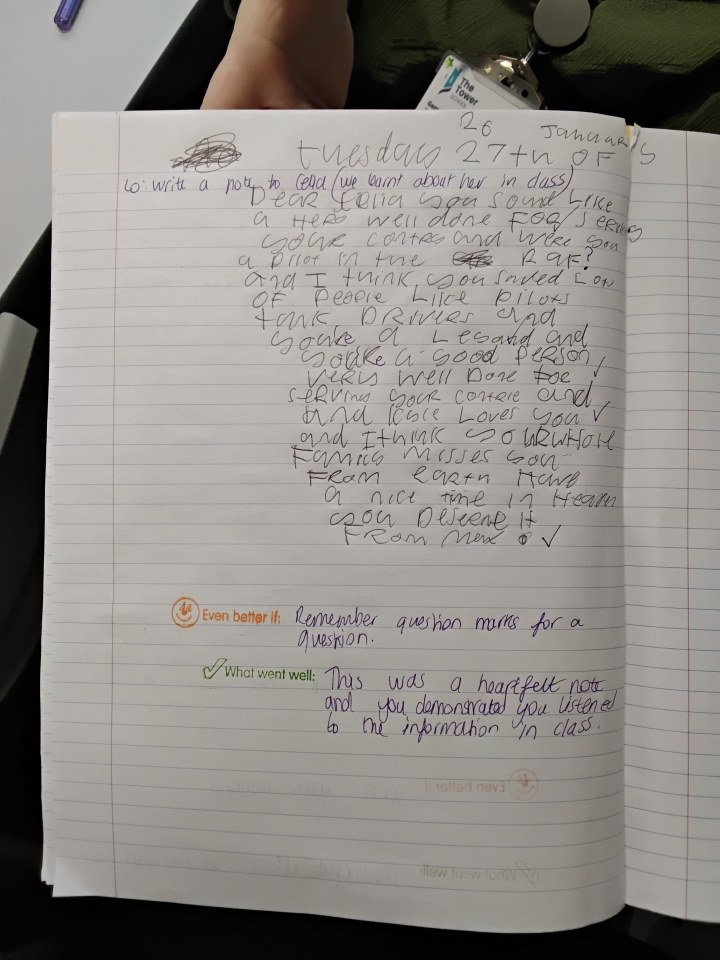 The
Tower
SCHOOL
26 January
tuesday 27th OF
Lo: write a note to Celia (we learnt about her in class)
Dear Celia you sound Like
a Hero well done FOR serving
your contry and were you
a pilot in the RaF?
and I think you saved Lots
OF People Like pilots
tank DRIVERS and
youRe a Legand and
youRe a good person
very well Done FOR
serving your contrie and
and Loves you
and I think YOUR whole
Family misses you
FROM Earth Have
a nice time in Heaven
you Deserve It
FROM Max
Even better if: Remember question marks for a
question.
What went well: This was a heartfelt note
and you demonstrated you listened
to the information in class.
Even better if
What went well: